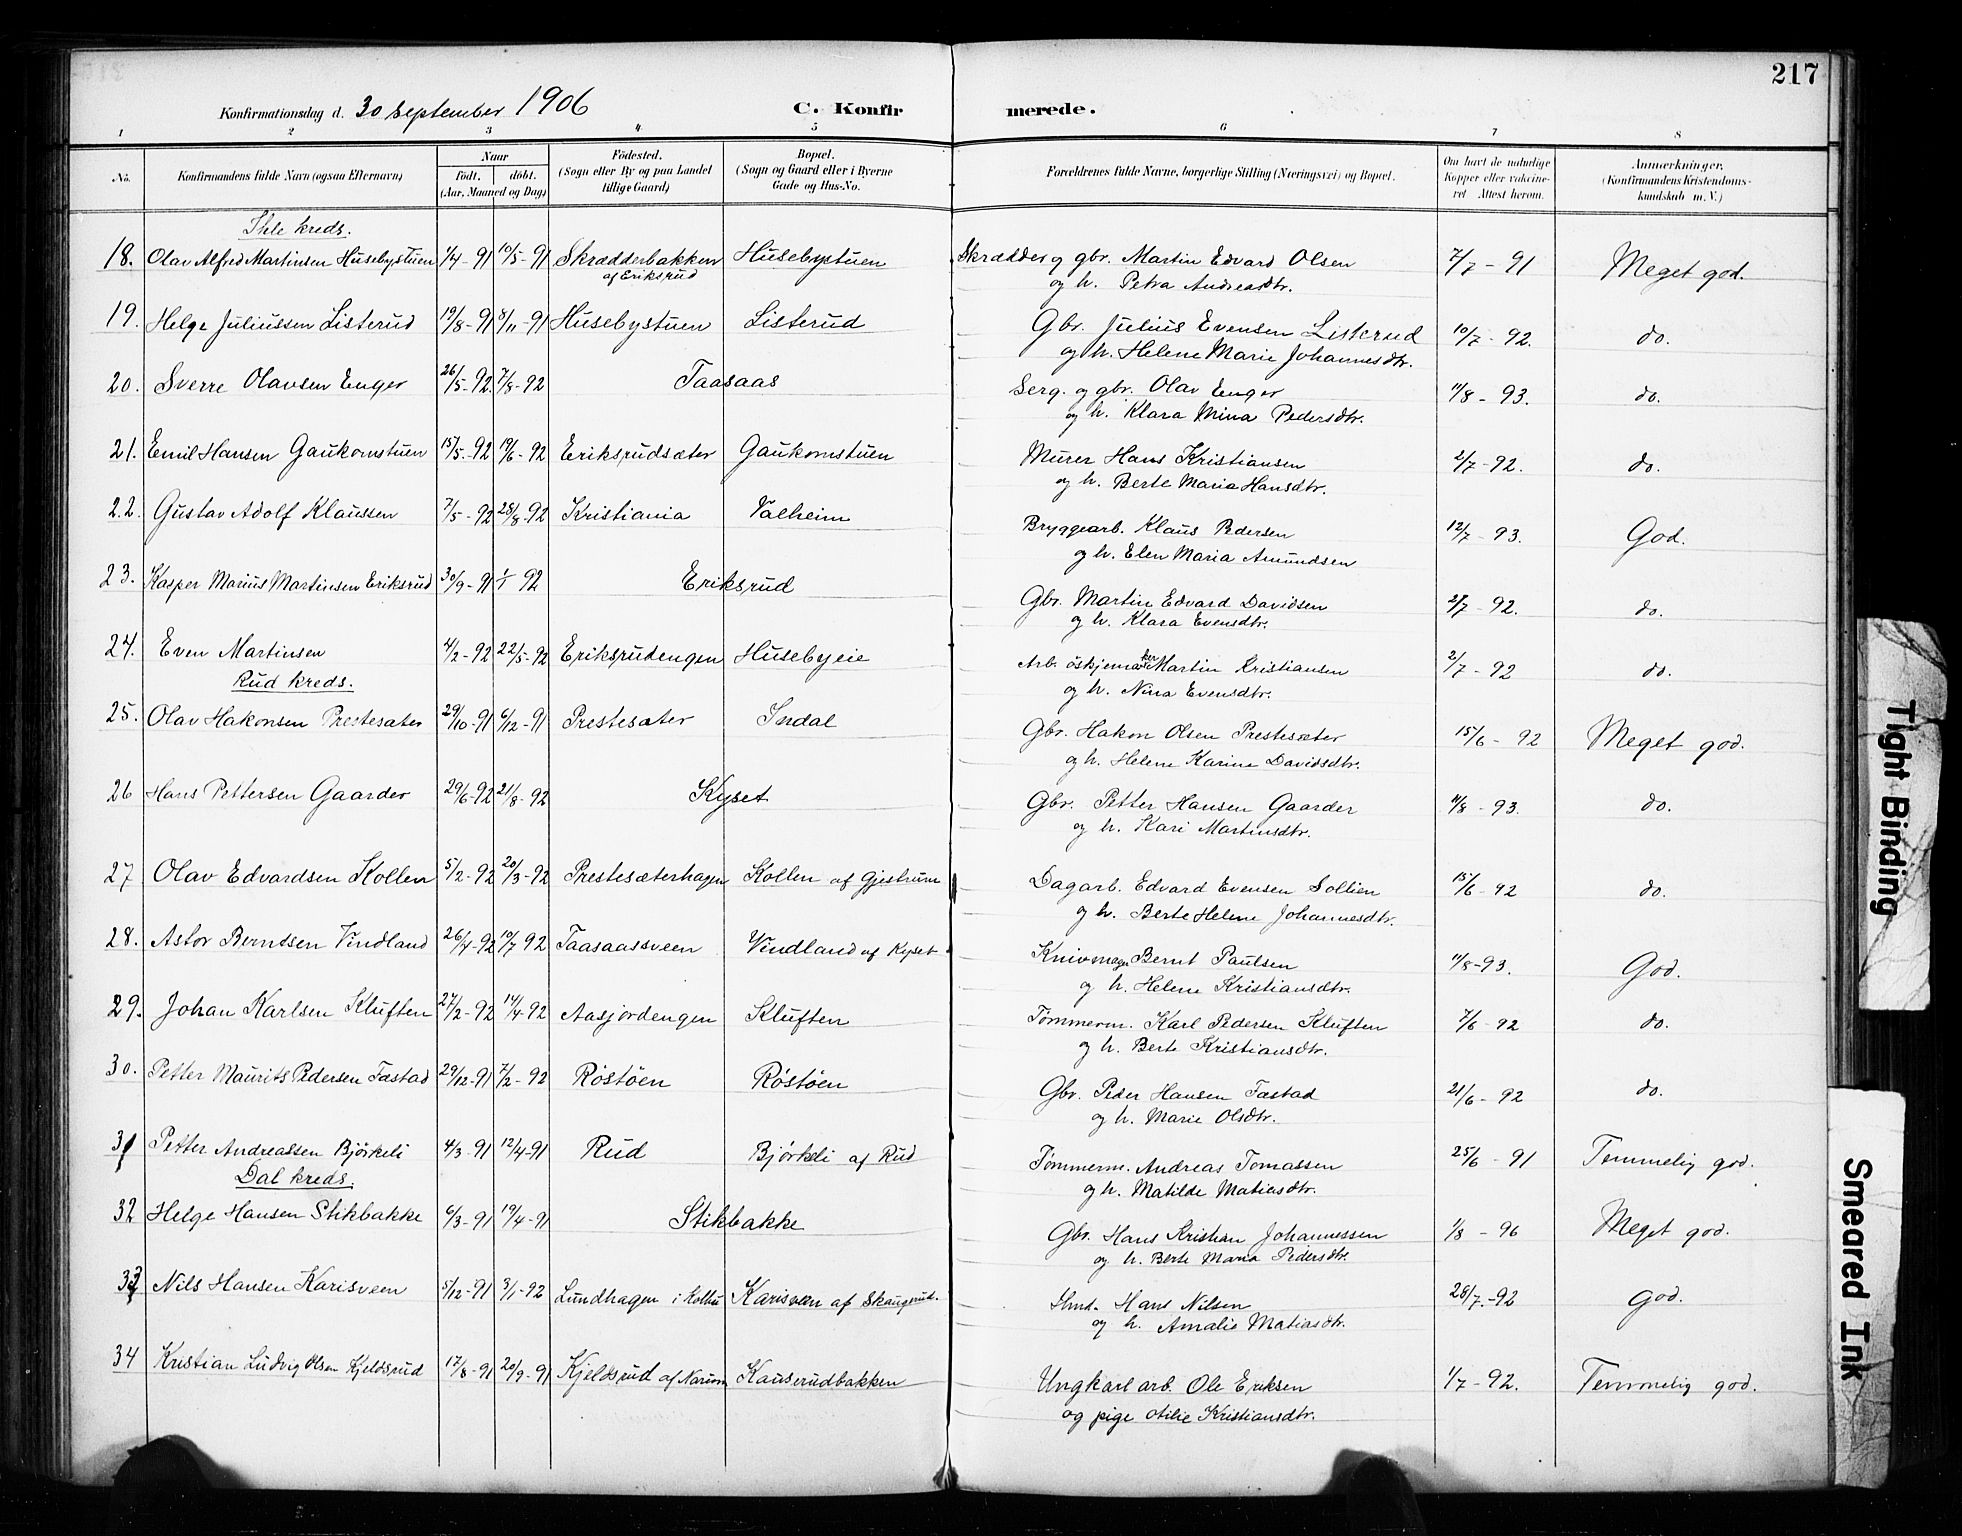 217
Konfirmationsdag d. 30 September 1906 C. Konfirmerede.
1 2 3 4 5 6 7 8
No. Konfirmandens fulde Navn (ogsaa Efternavn) Naar födt. döbt. (Aar, Maaned og Dag) Födested. (Sogn eller By og paa Landet tillige Gaard) Bopæl. (Sogn og Gaard eller i Byerne Gade og Hus-No. Forældrenes fulde Navne, borgerlige Stilling (Næringsvei) og Bopæl. Om havt de naturlige Kopper eller vakcineret. Attest herom. Anmærkninger. (Konfirmandens Kristendomskundskab m. V.)
Ihle kreds.
18. Olav Alfred Martinsen Husebystuen 1/4-91 10/5-91 Skrædderbakken af Eriksrud Husebystuen Skrædder og gbr. Martin Edvard Olsen 7/7-91 Meget god.
og h. Petra Andreasdtr.
19. Helge Juliussen Listerud 19/8-91 8/11-91 Husebystuen Listerud Gbr. Julius Evensen Listerud 10/7-92. do.
og h. Helene Marie Johannesdtr.
20. Sverre Olavsen Enger 26/5-92 7/8-92 Taasaas Serg. og gbr. Olav Enger 11/8-93. do.
og h. Klara Mina Pedersdtr.
21. Emil Hansen Gaukomstuen 15/5-92 19/6-92 Eriksrudsæter Gaukomstuen Murer Hans Kristiansen 2/7-92. do.
og h. Berte Maria Hansdtr.
22. Gustav Adolf Klaussen 7/5-92 28/8-92 Kristiania Valheim Bryggearb. Klaus Pedersen 12/7-93. God.
og h. Elen Maria Amundsen
23. Kasper Marius Martinsen Eriksrud 30/9-91 1/1 92 Eriksrud Gbr. Martin Edvard Davidsen 2/7-92. do.
og h. Klara Evensdtr.
24. Even Martinsen 4/2-92 22/5-92 Eriksrudengen Husebyeie Arb. öskjemaker Martin Kristiansen 2/7-92 do.
og h. Nina Evensdtr.
Rud kreds.
25. Olav Hakonsen Prestesæter 29/10-91 6/12-91 Prestesæter Indal Gbr. Hakon Olsen Prestesæter 15/6-92 Meget god.
og h. Helene Karine Davidsdtr.
26 Hans Pettersen Gaarder 29/6-92 21/8-92 Kyset Gbr. Petter Hansen Gaarder 11/8-93. do.
og h. Kari Martinsdtr.
27 Olav Edvardsen Kollen 5/2-92 20/3-92 Prestesæterhagen Kollen af Gjestrum Dagarb. Edvard Evensen Sollien 15/6-92 do.
og h. Berte Helene Johannesdtr.
28. Astor Berntsen Vindland 26/4-92 10/7 92 Taasaassveen Vindland af Kyset Knivmagr Bernt Paulsen 11/8-93. God.
og h. Helene Kristiansdtr.
29. Johan Karlsen Kluften 27/2-92 14/4-92 Aasjordengen Kluften Tömmerm. Karl Pedersen Kluften 7/6-92 do.
og h. Berte Kristiansdtr.
30. Petter Maurits Pedersen Fastad 29/12-91 7/2-92 Röstöen Röstöen Gbr. Peder Hansen Fastad 21/6-92 do.
og h. Marie Olsdtr.
31 Petter Andreassen Björkeli 4/3-91 12/4-91 Rud Björkeli af Rud Tömmerm. Andreas Tomassen 25/6-91 Temmelig god.
og h. Matilde Matiasdtr.
Dal kreds.
32 Helge Hansen Stikbakke 6/3-91 19/4-91 Stikbakke Gbr. Hans Kristian Johannessen 1/8-96 Meget god.
og h. Berte Maria Pedersdtr.
33 Nils Hansen Karisveen 5/12-91 3/1-92 Lundhagen i Kolbu Karisveen af Skaugerud. Hans Nilsen 28/7-92 God.
og h. Amalie Matiasdtr.
34 Kristian Ludvig Olsen Kjeldsrud 17/8-91 20/9-91 Kjeldsrud af Narum Kauserudbakken Ungkarl arb. Ole Eriksen 1/7-92. Temmelig god.
og pige Kristiansdtr.
Tight Binding
Smeared Ink